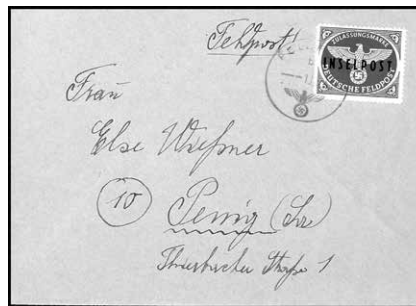 Feldpost
ZULASSUNGSMARKE
INSELPOST
DEUTSCHE FELDPOST
Frau
Else Wießner
10 Penig (Sa)
Straße 1